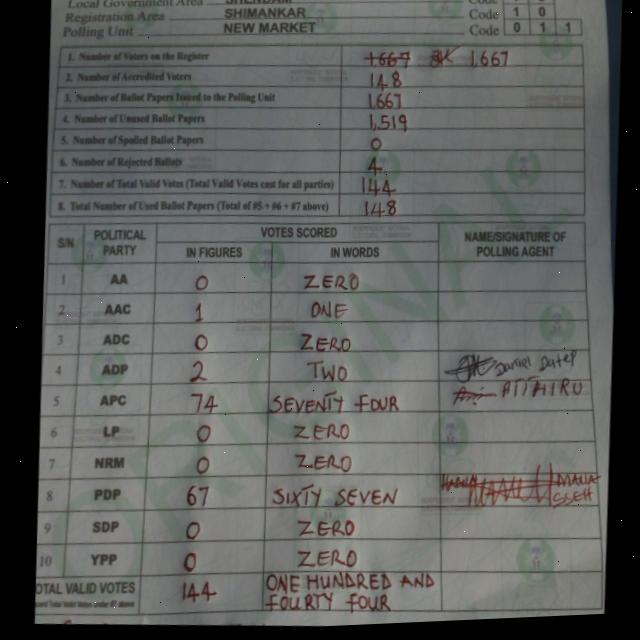 Local Government Area SHENDAM Code
Registration Area SHIMANKAR Code 1 0
Polling Unit NEW MARKET Code 0 1 1
1. Number of Voters on the Register 1667 1,667
2. Number of Accredited Voters 148
3. Number of Ballot Papers Issued to the Polling Unit 1667
4. Number of Unused Ballot Papers 1,519
5. Number of Spoiled Ballot Papers 0
6. Number of Rejected Ballots 4
7. Number of Total Valid Votes (Total Valid Votes cast for all parties) 144
8. Total Number of Used Ballot Papers (Total of #5 + #6 + #7 above) 148
S/N POLITICAL PARTY VOTES SCORED NAME/SIGNATURE OF POLLING AGENT
IN FIGURES IN WORDS
1 AA 0 ZERO
2 AAC 1 ONE
3 ADC 0 ZERO
4 ADP 2 TWO Daniel
5 APC 74 SEVENTY FOUR ATTAHIRU
6 LP 0 ZERO
7 NRM 0 ZERO
8 PDP 67 SIXTY SEVEN
9 SDP 0 ZERO
10 YPP 0 ZERO
OTAL VALID VOTES 144 ONE HUNDRED AND
FOURTY FOUR